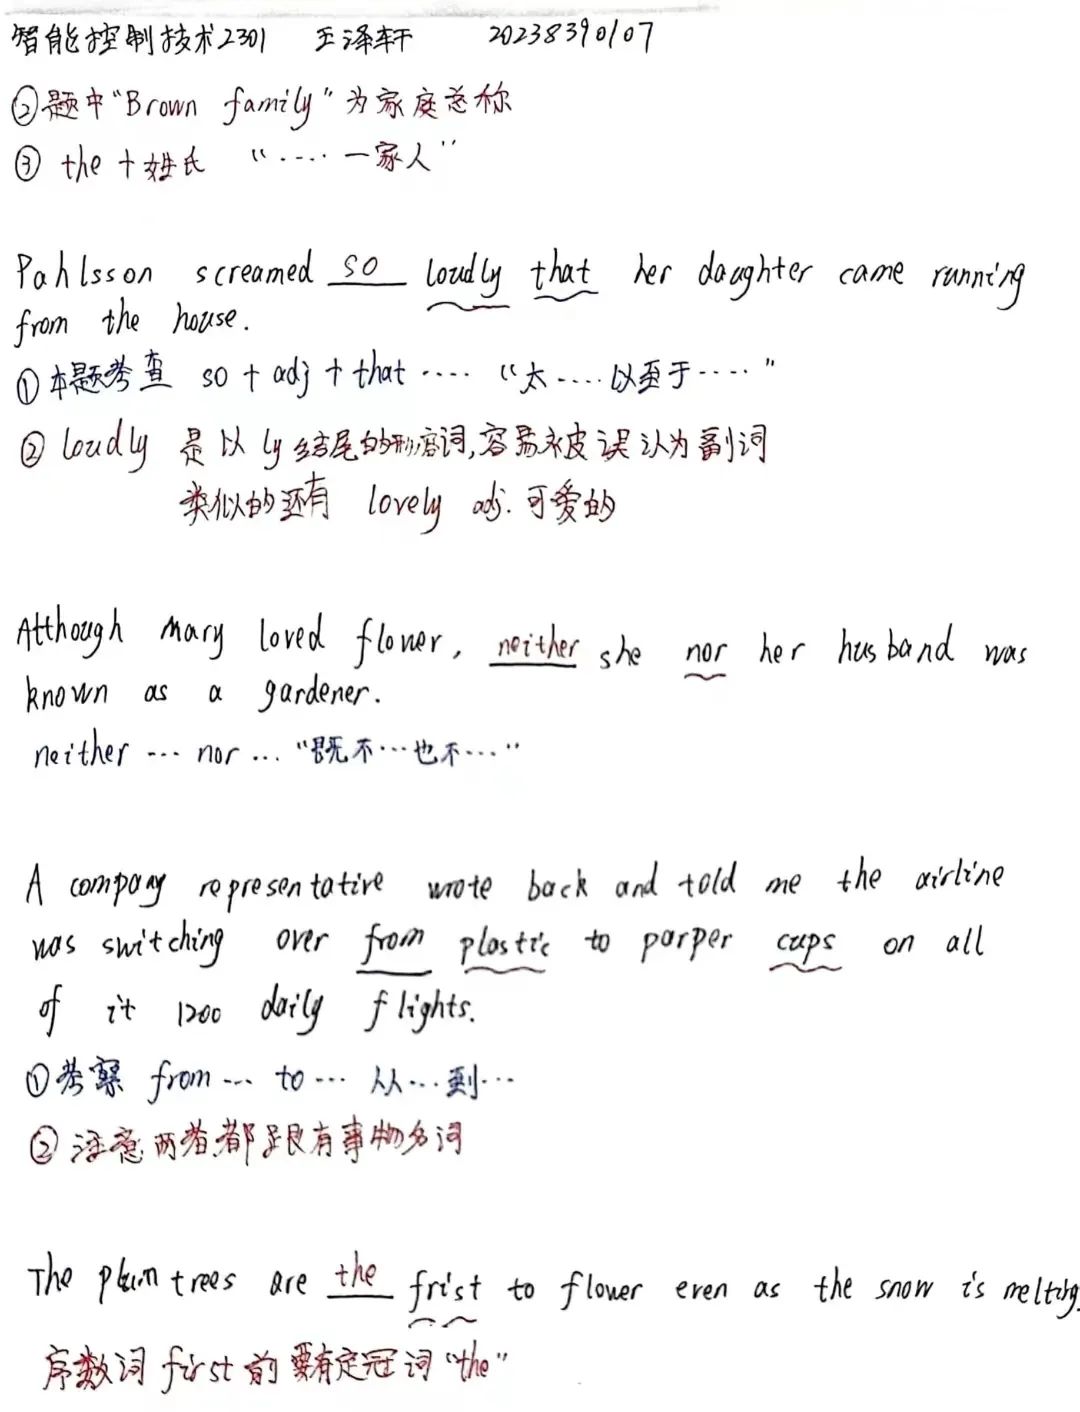 智能控制技术2301 王泽轩 20238390107
②题中“Brown family”为家庭总称
③ the + 姓氏 “····一家人”
Pahlsson screamed so loudly that her daughter came running
from the house.
①本题考查 so + adj + that ···· “太····以至于····”
② loudly 是以 ly 结尾的形容词,容易被误认为副词
类似的还有 lovely adj. 可爱的
Although Mary loved flower, neither she nor her husband was
known as a gardener.
neither ··· nor ... “既不···也不···”
A company representative wrote back and told me the airline
was switching over from plastic to parper cups on all
of it 1200 daily flights.
①考察 from ··· to ··· 从···到···
②注意两者都跟有事物名词
The plum trees are the frist to flower even as the snow is melting.
序数词 first 前要有定冠词“the”